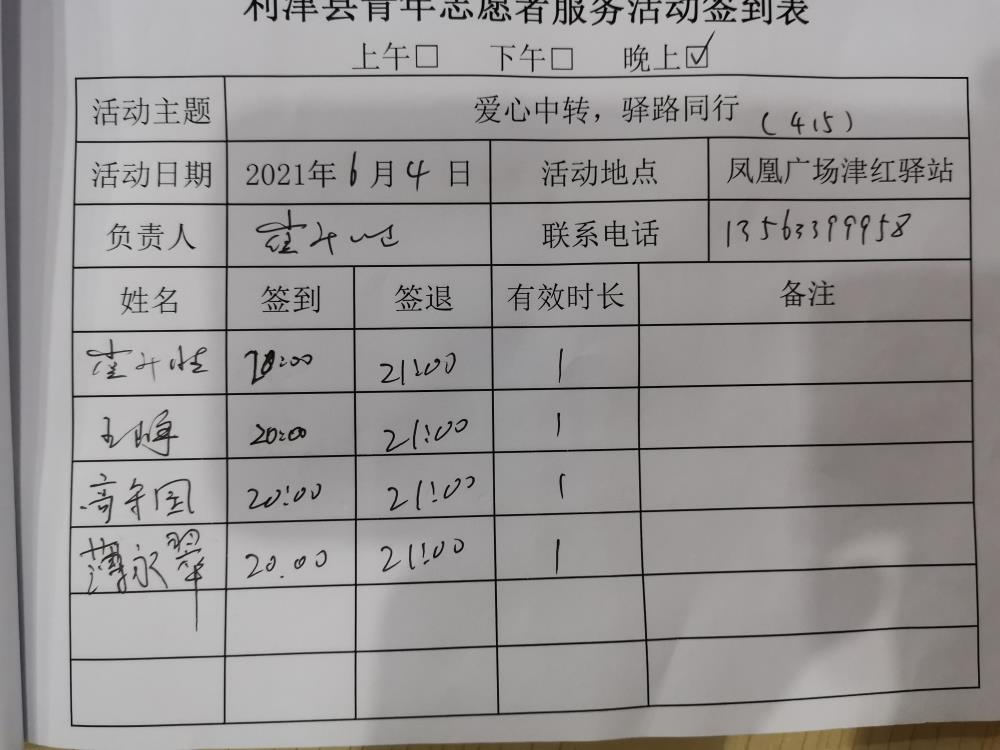 利津县青年志愿者服务活动签到表
上午□ 下午□ 晚上☑
活动主题 爱心中转，驿路同行 (415)
活动日期 2021年6月4日 活动地点 凤凰广场津红驿站
负责人 联系电话 13563399958
姓名 签到 签退 有效时长 备注
20:00 21:00 1
王晖 20:00 21:00 1
高守国 20:00 21:00 1
薄永翠 20:00 21:00 1